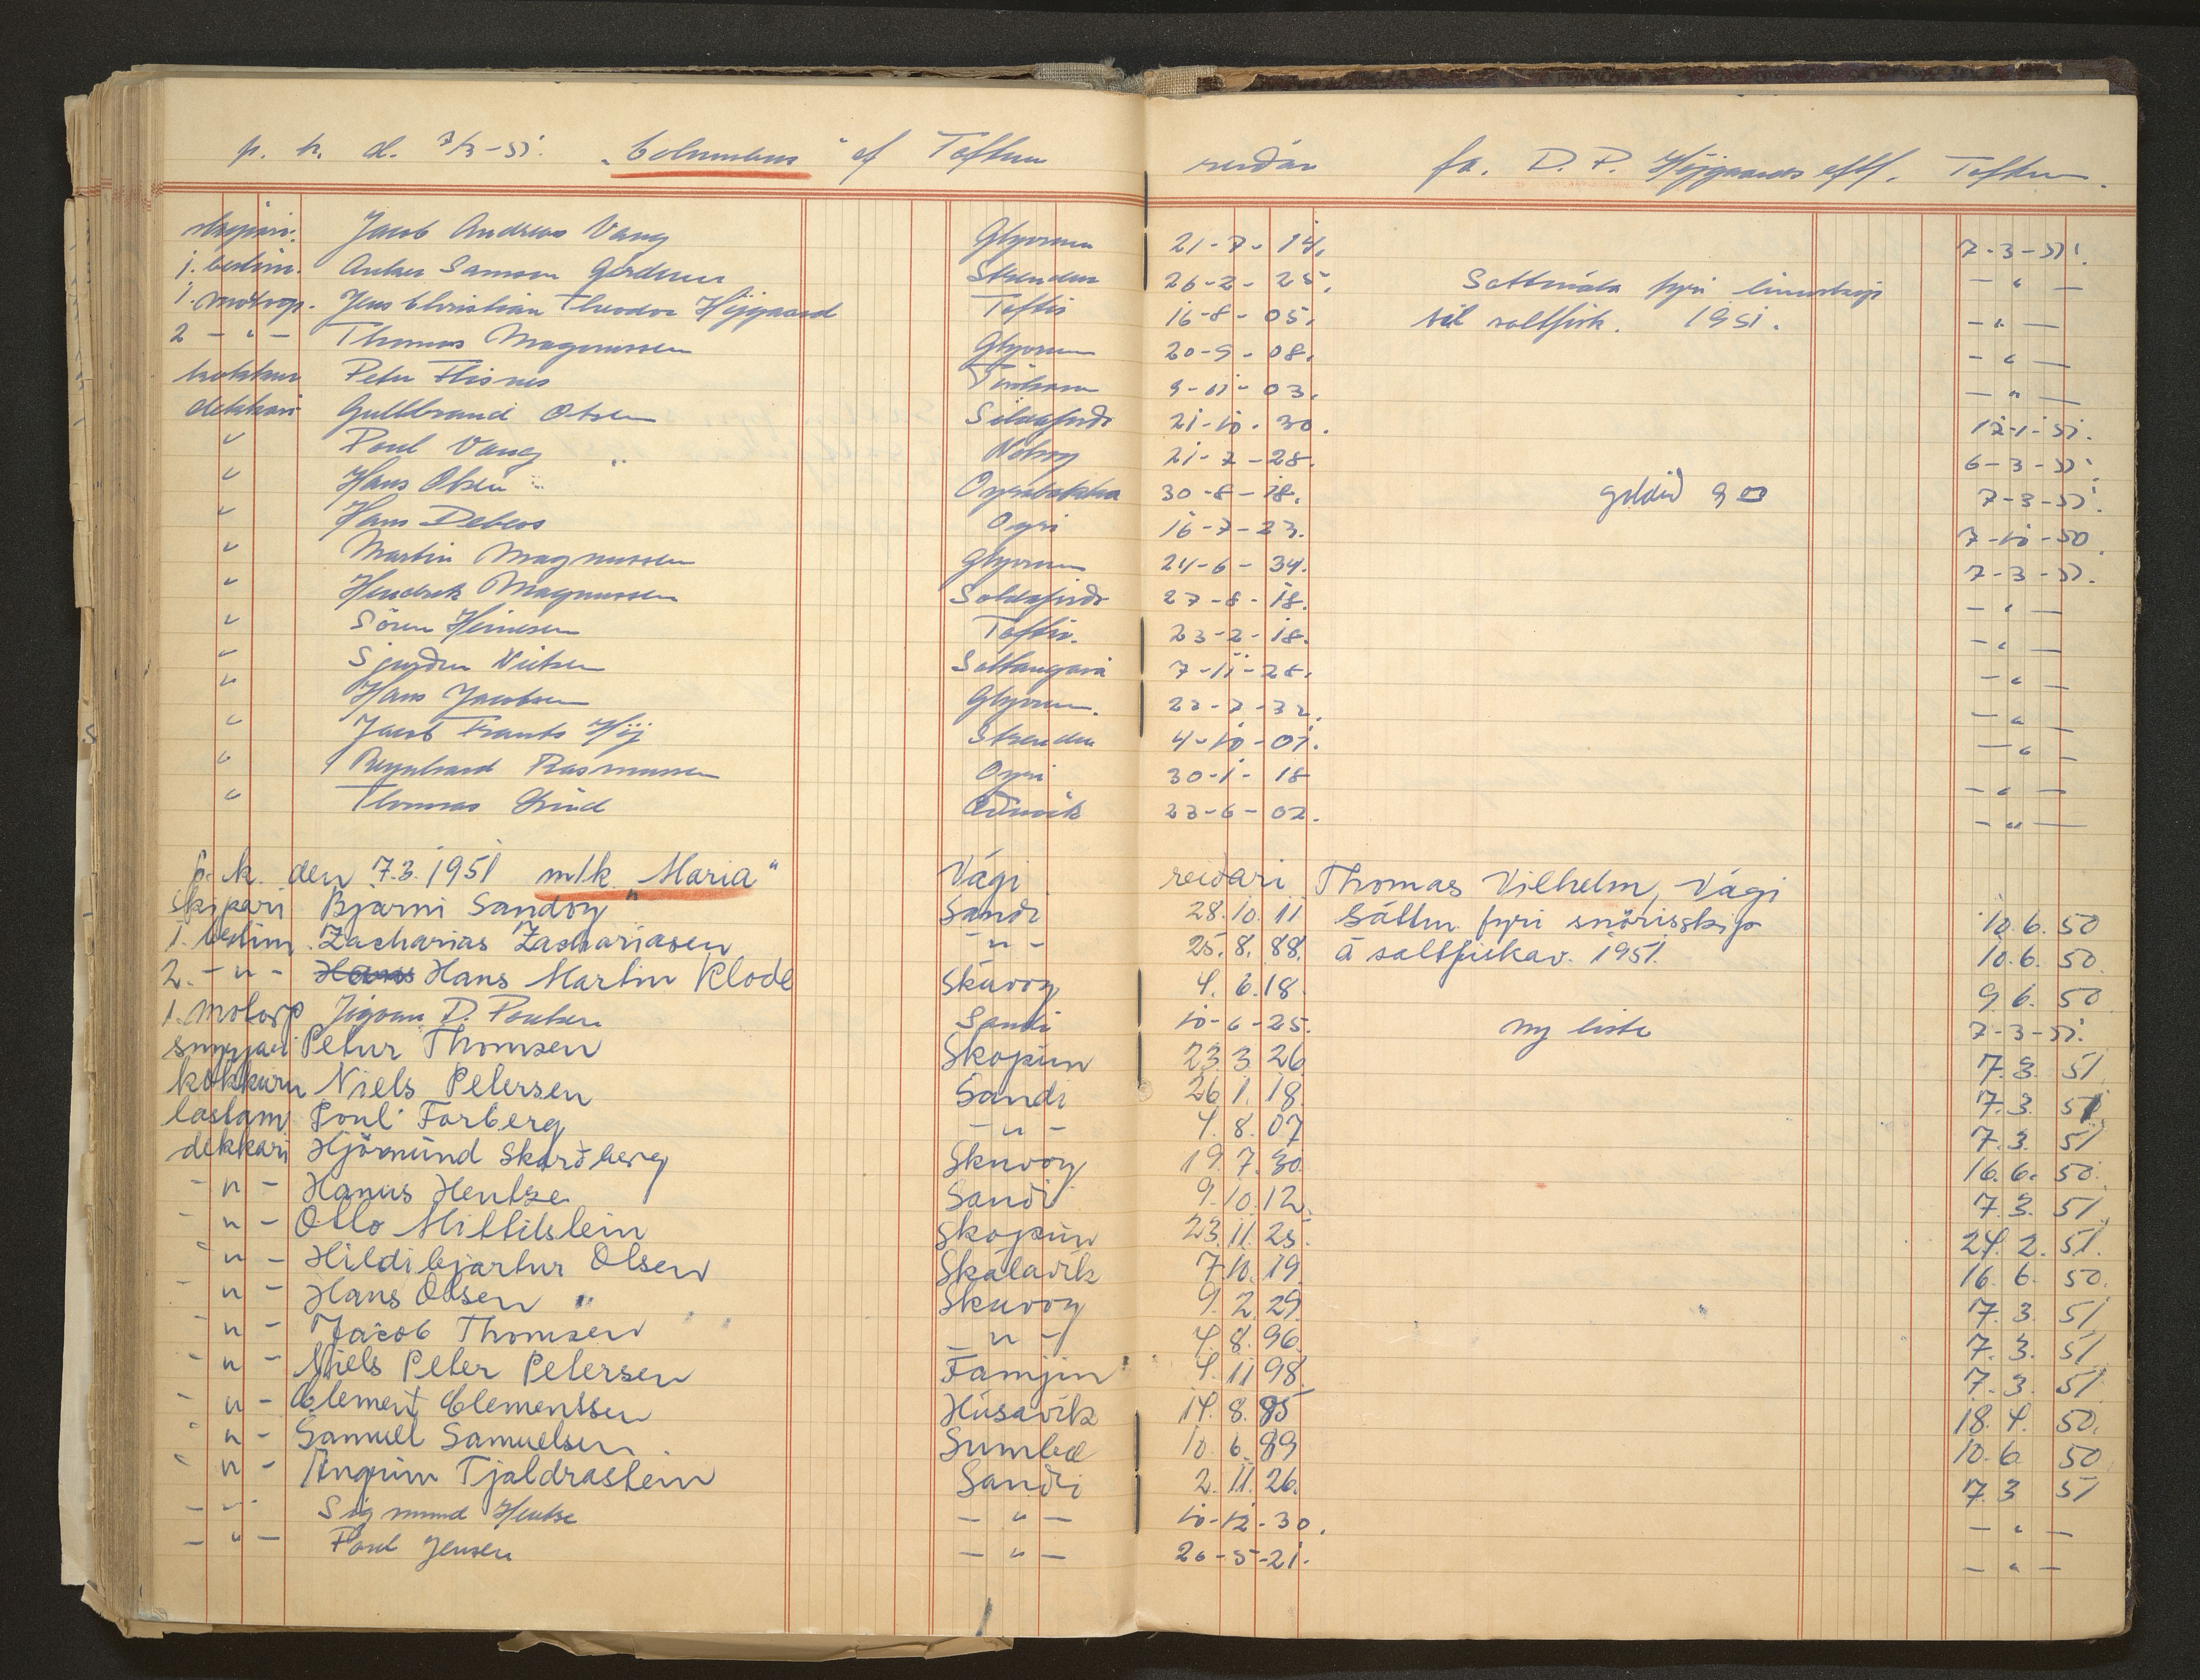 p. k. d. 7/3-51. "Columbus" af Toftum reiðari fa. D. P. Højgaards eftf. Toftum.
skipari. Jacob Andreas Vang Glyvrum 21-7-14. 7-3-51.
1. bestim. Anker Samson Gerdum Strendum 26-2-25. Sáttmála fyri línuskip — " —
1. motorp. Jens Christian Theodor Højgaard Toftir 16-8-05. til saltfisk. 1951. — " —
2 — " — Thomas Magnussen Glyvrum 20-9-08. — " —
kokkur Peter Flisnes 9-11-03. — " —
dekkari Gullbrand Olsen Saldafjørð 21-10-30. 12-1-51.
" Poul Vang Nolsoy 21-7-28. 6-3-51.
" Hans Olsen Oyrabakka 30-8-18. goldið 9 00 7-3-51.
" Hans Debes Oyri 16-7-23. 7-10-50.
" Martin Magnussen Glyvrum 24-6-34. 7-3-51.
" Hendrik Magnussen Saldafjørð 27-8-18. — " —
" Sören Heinesen Toftir. 23-2-18. — " —
" Sjurður Nielsen Saltangará 7-11-28. — " —
" Hans Jacobsen Glyvrum. 22-7-32. — " —
" Jacob Frants Høj Strendum 4-10-01. — " —
" Reynhard Rasmussen Oyri 30-1-18 — " —
" Thomas Lund Eiðisvík 23-6-02. — " —
p. k. den 7.3.1951 m/k "Maria" Vági reiðari Thomas Vilhelm, Vági
skipari Bjarni Sandoy Sandi 28.10.11 Sáttm. fyri snørisskip 10.6.50
1. bestim. Zacharias Zachariasen — " — 25.8.88. á saltfiskav. 1951. 10.6.50.
2. — " — Hans Hans Martin Klode Skúvoy 4.6.18 9.6.50
1. motorp Jógvan D. Poulsen Sandi 10-6-25. ny liste 7-3-51.
smyrjari Petur Thomsen Skopun 23.3.26 7.3.51
kokkurin Niels Petersen Sandi 26.1.18. 7.3.51
lastam. Poul Farberg — " — 4.8.07 7.3.51
dekkari Hjörmund Skarðberg Skúvoy 19.7.30. 16.6.50.
— " — Hanus Hentze Sandi 9.10.12. 7.3.51
— " — Otto Mittilstein Skopun 23.11.25. 24.2.51.
— " — Hildibjartur Olsen Skálavík 7.10.19. 16.6.50.
— " — Hans Olsen Skúvoy 9.2.29. 7.3.51
— " — Jacob Thomsen — " — 4.8.96. 7.3.51
— " — Niels Peter Petersen Famjin 4.11.98. 7.3.51
— " — Clement Clementsen Húsavík 14.8.95 18.4.50.
— " — Samuel Samuelsen. Sumba 10.6.89 10.6.50
— " — Angrim Tjaldrastein Sandi 2.11.26. 7.3 51
— " — Sigmund Hentze — " — 10-12-30. — " —
— " — Poul Jensen — " — 20-5-21. — " —